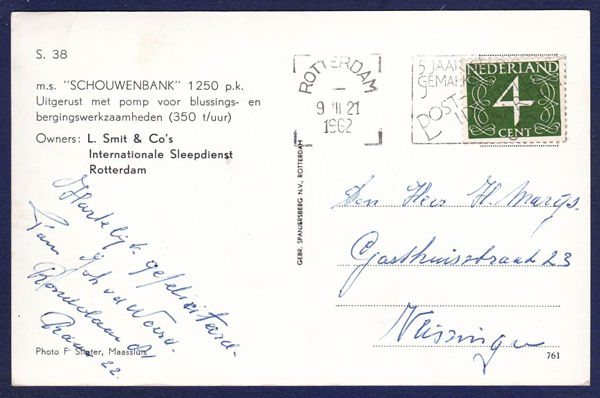 S. 38
m.s. "SCHOUWENBANK" 1250 p.k.
Uitgerust met pomp voor blussings- en
bergingswerkzaamheden (350 t/uur)
Owners: L. Smit & Co's
Internationale Sleepdienst
Rotterdam
Hartelijk gefeliciteerd
Fam
v d
22.
Photo F. Sluiter, Maassluis
GEBR. SPANJERSBERG N.V., ROTTERDAM
ROTTERDAM
9 III 21
1962
5 JAAR
GEMAK
POST-
NEDERLAND
4
CENT
Den Heer H. Marijs.
Gasthuisstraat 23
Vlissingen
761